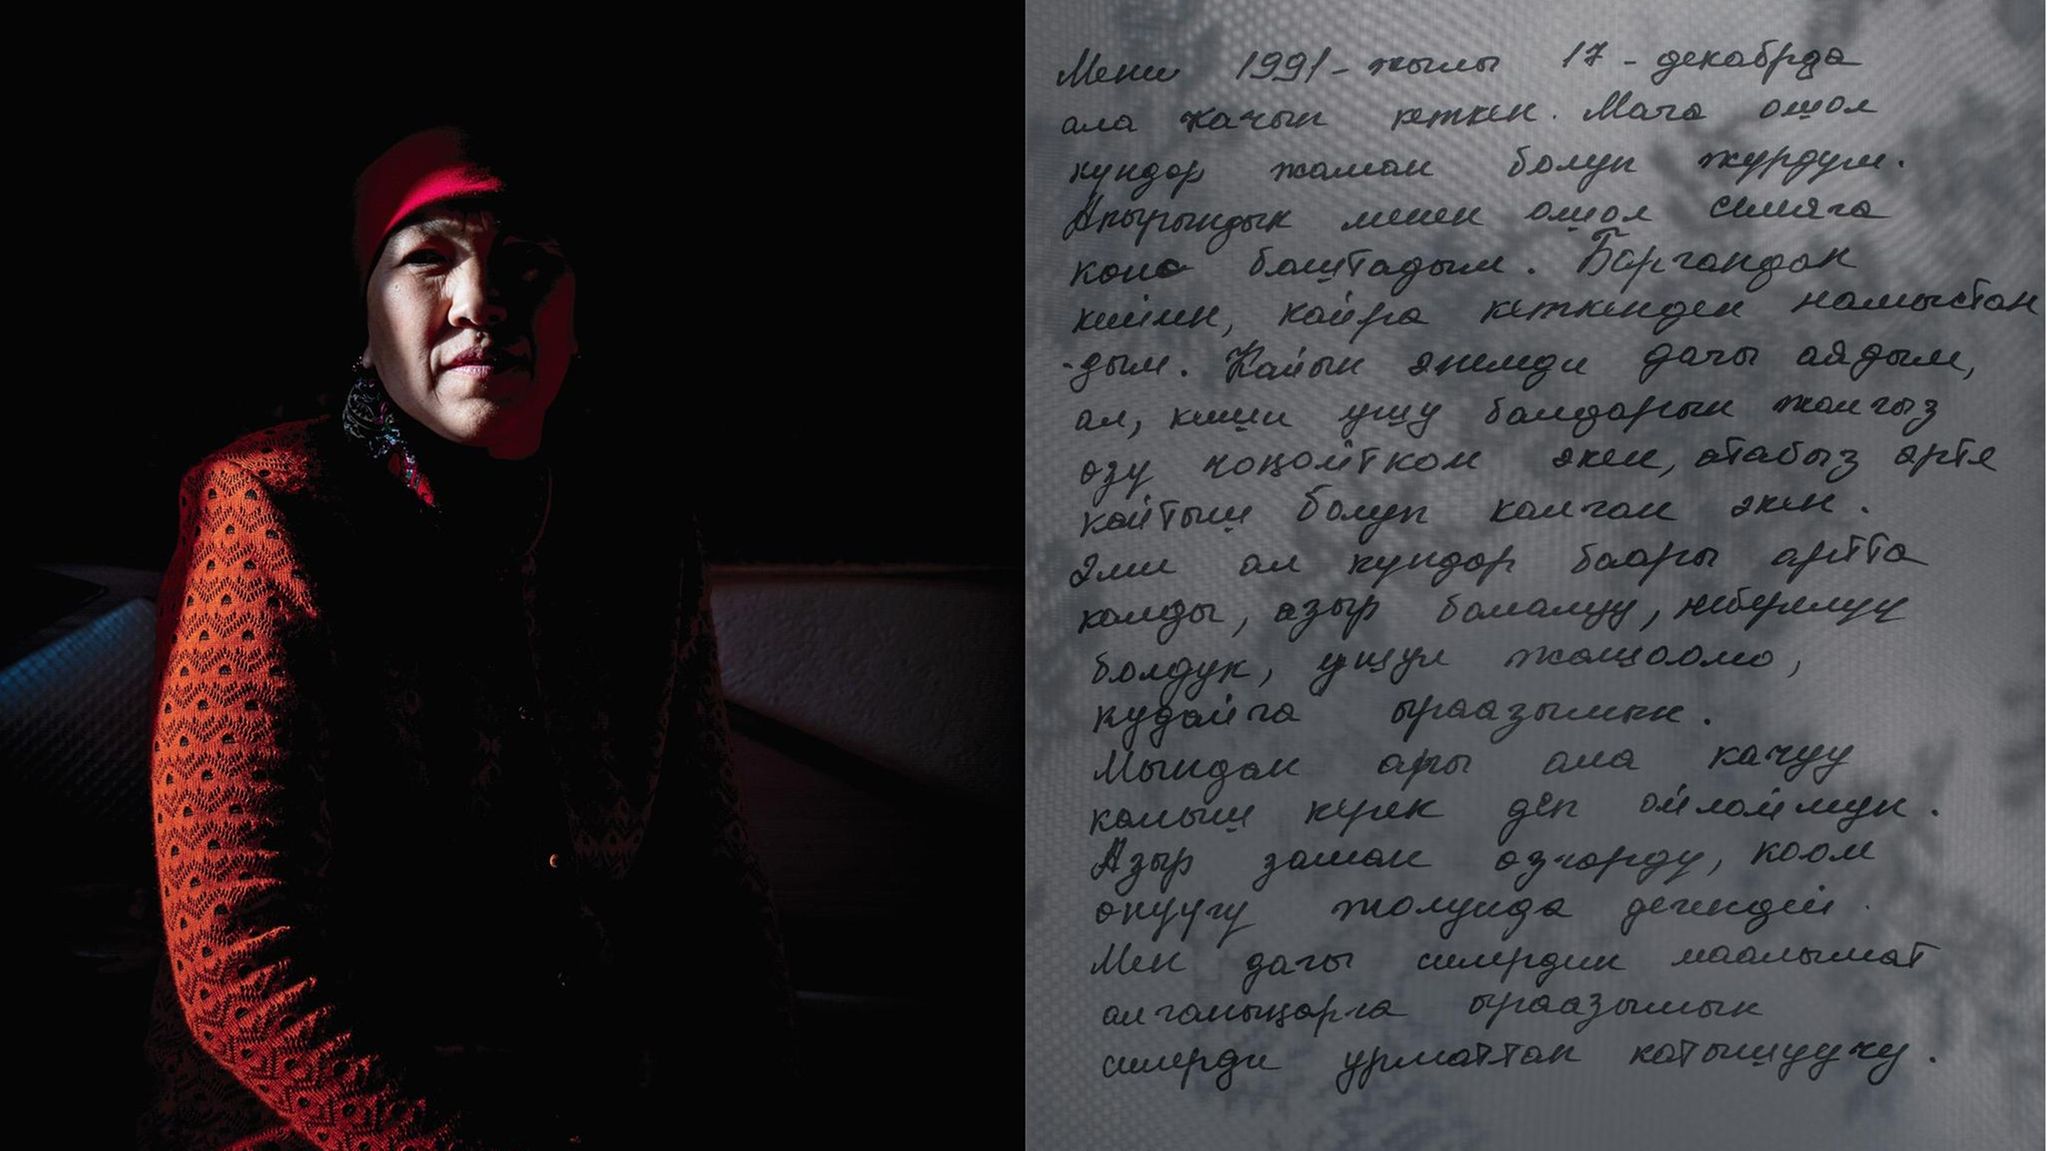 Мени 1991-жылы 17-декабрда
ала качып кеткен. Мага ошол
күндөр жаман болуп жүрдүм.
Акырындык менен ошол семяга
көнө баштадым. Баргандан
кийин, кайра кеткенден намыстан
-дым. Кайын энемди дагы аядым,
ал, киши ушу балдарын жалгыз
өзү чоңойткон экен, атабыз эрте
кайтыш болуп калган экен.
Эми ал күндөр баары артта
калды, азыр балалуу, небрелүү
болдук, ушул жашоомо,
кудайга ыраазымын.
Мындан ары ала качуу
калыш керек деп ойлоймун.
Азыр заман өзгөрдү, коом
өнүүгү жолунда дегендей.
Мен дагы силердин маалымат
алганыңарга ыраазымын
силерди урматтап катышуучу.